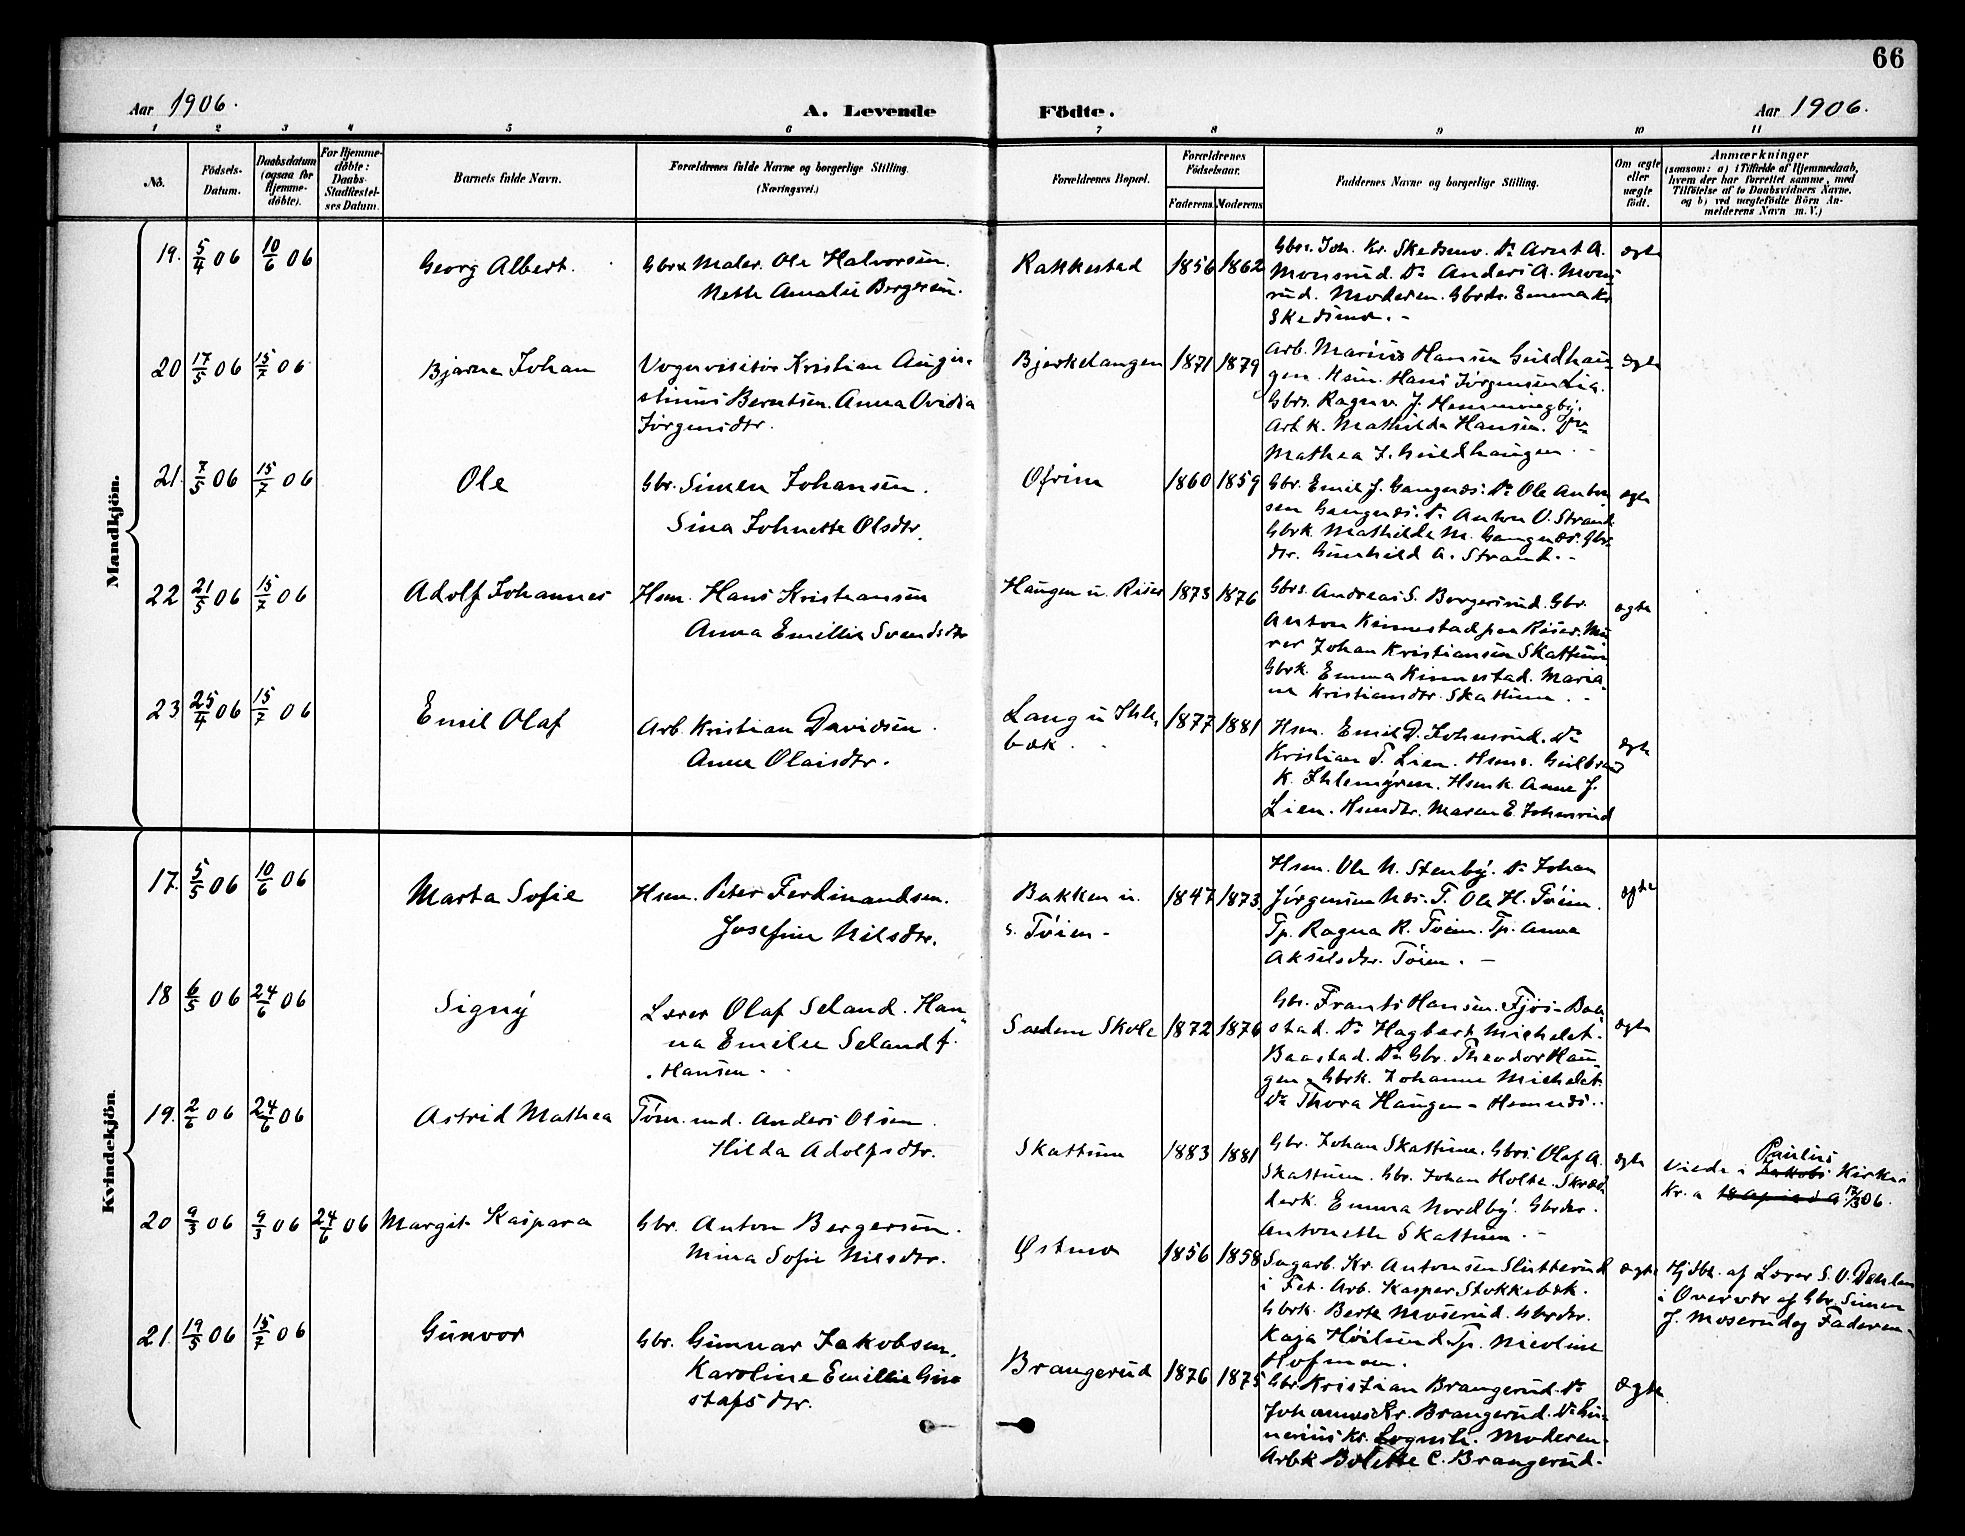 66
Aar 1906.
A. Levende Födte.
Aar 1906.
1 2 3 4 5 6 7 8 9 10 11
No.
Födsels-Datum.
Daabsdatum (ogsaa for Hjemme-döbte).
For Hjemme-döbte: Daabs-Stadfæstel-ses Datum.
Barnets fulde Navn.
Forældrenes fulde Navne og borgerlige Stilling. (Næringsvei.)
Forældrenes Bopæl.
Forældrenes Födselsaar.
Faderens. Moderens.
Faddernes Navne og borgerlige Stilling.
Om ægte eller uægte födt.
Anmærkninger
(saasom: a) i Tilfælde af Hjemmedaab,
hvem der har forrettet samme, med
Tilföielse af to Daabsvidners Navne,
og b) ved uægtefödte Börn An-
melderens Navn m. V.)
Mandkjön.
19. 5/4 06 10/6 06 Georg Albert.
Gbr. Maler. Ole Halvorsen.
Nette Amalie Bergersen.
Rakkestad 1856 1862
Gbrs. Joh. Kr. Skedsmo. Do Arnt A.
Monsrud. Do Anders A. Mons
rud. Moderen. Gbrdr. Emma Kr
Skedsmo. -
ægte
20 17/5 06 15/7 06 Bjarne Johan
Vognvisitør Kristian Augu-
stinus Berntsen. Anna Ovidia
Jørgensdtr.
Bjerkelangen 1871 1879
Arb. Marius Hansen Guldhau-
gen. Hsm. Hans Jørgensen Lia.
Gbrs. Ragnv. J. Hemmingby.
Arb k. Mathilda Hansen.
Mathea J. Guldhaugen. -
ægte
21. 7/5 06 15/7 06 Ole
Gbr. Simen Johansen.
Sina Johnette Olsdtr.
Ofrim 1860 1859
Gbr. Emil J. Gangnæs. Do Ole Anton
sen Gangnæs. Do Anton O. Strand
Gbrk. Mathilde M. Gangnæs. Gbr.
dtr. Gunhild A. Strand. -
ægte
22 21/5 06 15/7 06 Adolf Johannes
Hsm. Hans Kristiansen
Anna Emillie Svendsdtr
Haugen u. Riser 1873 1876
Gbrs. Andreas S. Borgersrud. Gbr.
Anton Kinnestad paa Riser. Mu
rer Johan Kristiansen Skattum
Gbrk. Emma Kinnestad. Maria-
ne Kristiansdtr. Skattum. -
ægte
23 25/4 06 15/7 06 Emil Olaf
Arb. Kristian Davidsen.
Anne Olaisdtr.
Lang u Ihle,
bæk. 1877 1881
Hsm. Emil D. Johnsrud. Do
Kristian T. Lien. Hsms. Gulbrand
K. Ihlemyren. Hsmk. Anne J.
Lien. Hsmdtr. Maren E. Johnsrud
ægte
Kvindekjön.
17. 5/5 06 10/6 06 Marta Sofie
Hsm. Peter Ferdinandsen.
Josefine Nilsdtr.
Bakken u.
s. Tøien - 1847 1873
Hsm. Ole N. Stenby. Do Johan
Jørgensen Næs. T. Ole H. Tøien.
Tp. Ragna R. Tøien. Tp. Anna
Akselsdtr. Tøien. -
ægte
18 6/5 06 24/6 06 Signy
Lærer Olaf Seland. Han-
na Emilie Seland f.
Hansen.
Sædem Skole 1872 1876
Gbr. Frants Hansen. Fjøs-Baa-
stad. Do Hagbart Michelet.
Baastad. Do Gbr. Theodor Hau
gen. Gbrk. Johanne Michelet
Do Thora Haugen - Hemnæs..
ægte
19. 2/6 06 24/6 06 Astrid Mathea
Tøm.md. Anders Olsen.
Hilda Adolfsdtr.
Skattum 1883 1881
Gbr. Johan Skattum. Gbrs. Olaf A.
Skattum. Gbr. Johan Holte. Skræd
derk. Emma Nordby. Gbrdtr.
Antonette Skattum. -
ægte
Viede i Jakobs Paulus Kirke i
Kr.a 18 April d A. 17/3 06.
20 9/3 06 9/3 06 24/6 06 Margit Kaspara
Gbr. Anton Bergersen.
Mina Sofie Nilsdtr.
Østmo 1856 1858
Sagarb. Kr. Antonsen Slutterud
i Fet. Arb. Kasper Stokkebæk.
Gbrk. Berte Moserud. Gbrdtr.
Kaja Høilund. Tp. Nicoline
Hofmoen.
ægte
Hjdbt. af Lærer S. O. Dahlen
i Overvær af Gbr. Simen
J. Moserud og Faderen -
21. 19/5 06 15/7 06 Gunvor
Gbr. Gunnar Jakobsen.
Karoline Emillie Gu-
stafsdtr.
Brangerud 1876 1875
Gbr Kristian Brangerud. Do
Johannes Kr. Brangerud. Do Gu-
nerius Kr. Lognsli. Moderen.
Arbk Bolette C. Brangerud.
ægte